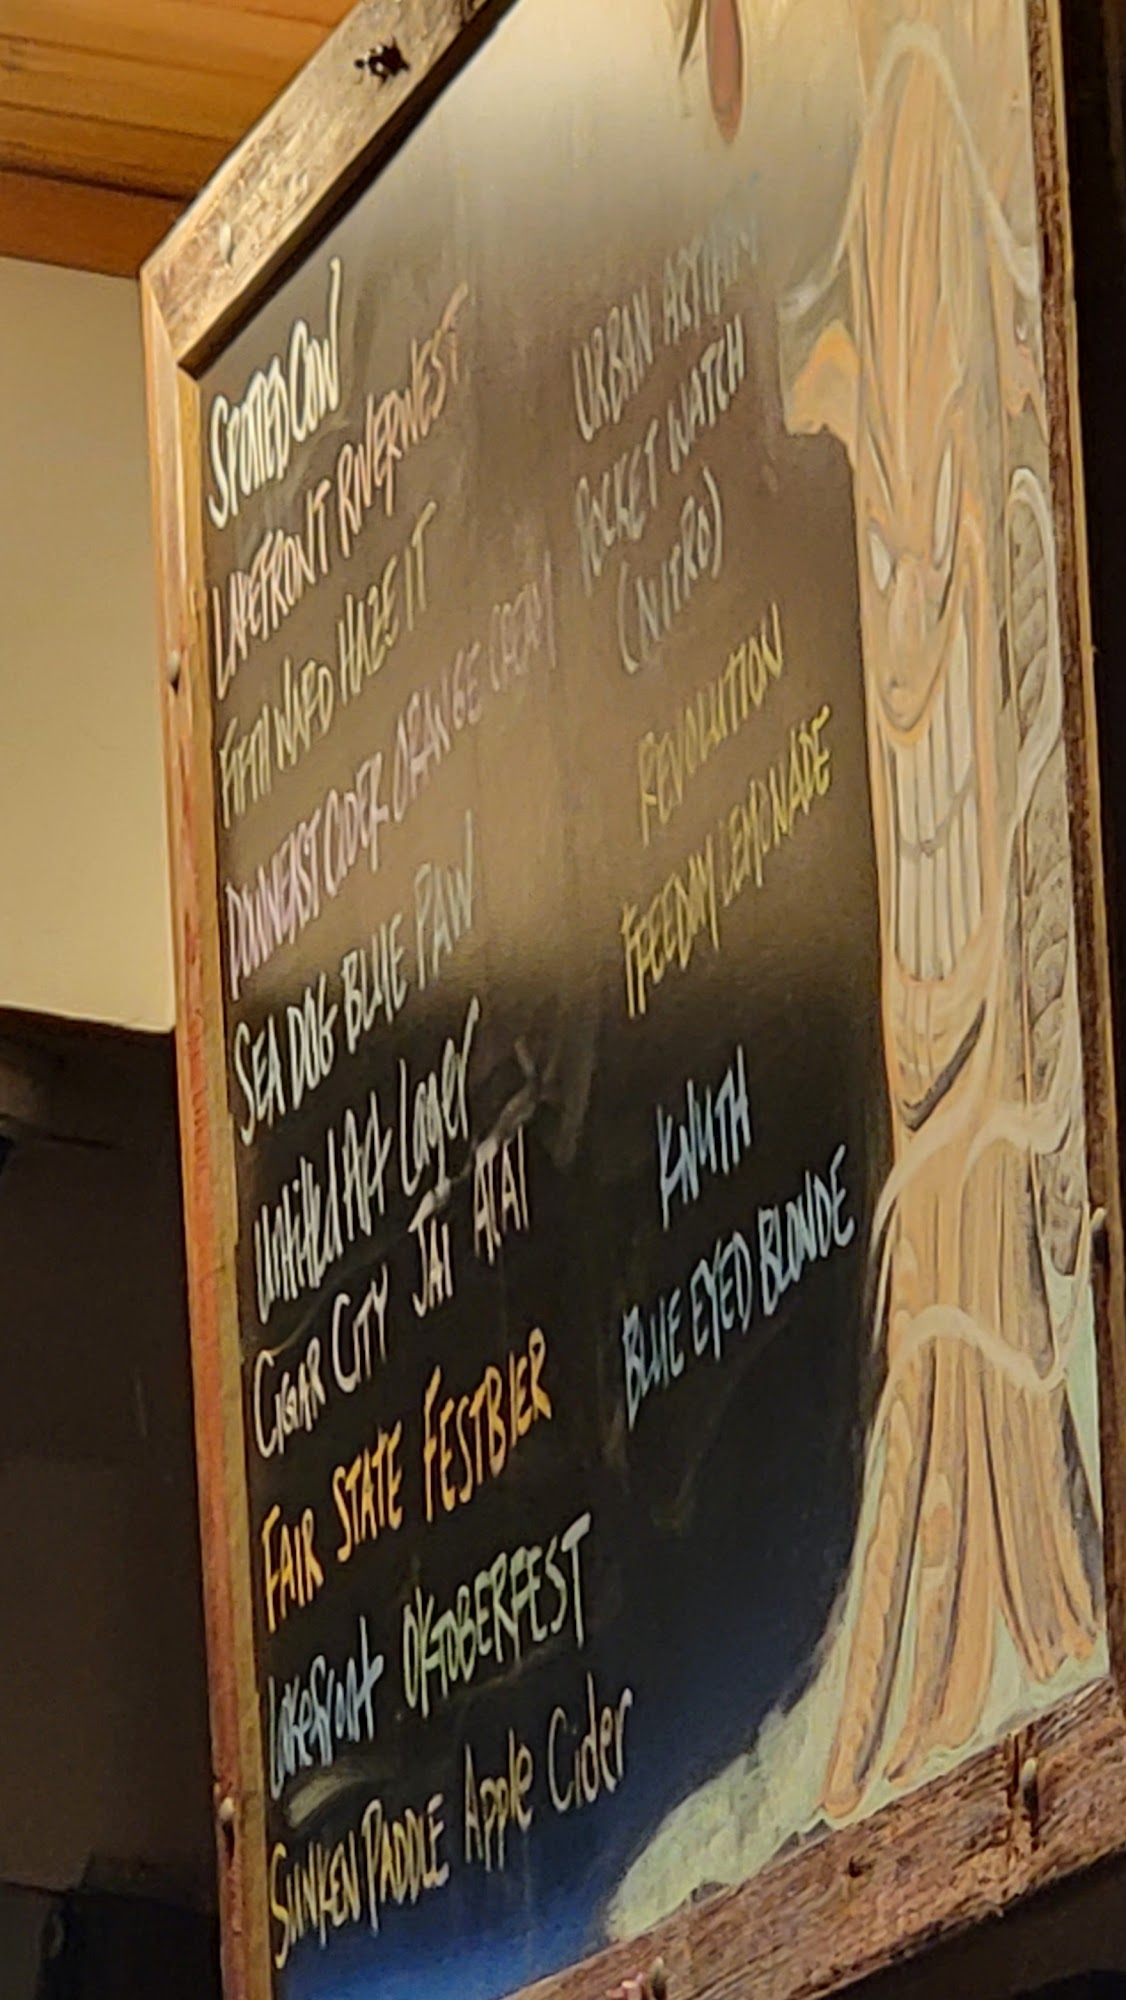 SPOTTED COW
LAKEFRONT RIVERWEST
FIFTH WARD HAZE IT
DOWNEAST CIDER ORANGE CREAM
SEA DOG BLUE PAW
Untitled Art Lager
CIGAR CITY JAI ALAI
FAIR STATE FESTBIER
Lakefront OKTOBERFEST
SUNKEN PADDLE Apple Cider
URBAN ARTIFACT
POCKET WATCH
(NITRO)
REVOLUTION
FREEDOM LEMONADE
KNUTH
BLUE EYED BLONDE